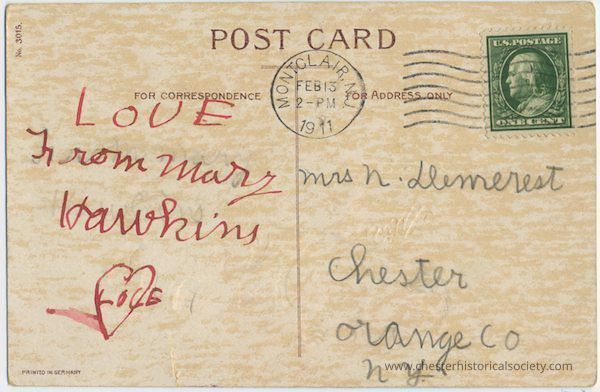 No. 3015.
POST CARD
FOR CORRESPONDENCE
FOR ADDRESS ONLY
MONTCLAIR, N.J.
FEB 13
2-PM
1911
U.S. POSTAGE
ONE CENT
LOVE
From Mary
Hawkins
LOVE
Mrs N. Demerest
Chester
Orange Co
N.Y.
www.chesterhistoricalsociety.com
PRINTED IN GERMANY